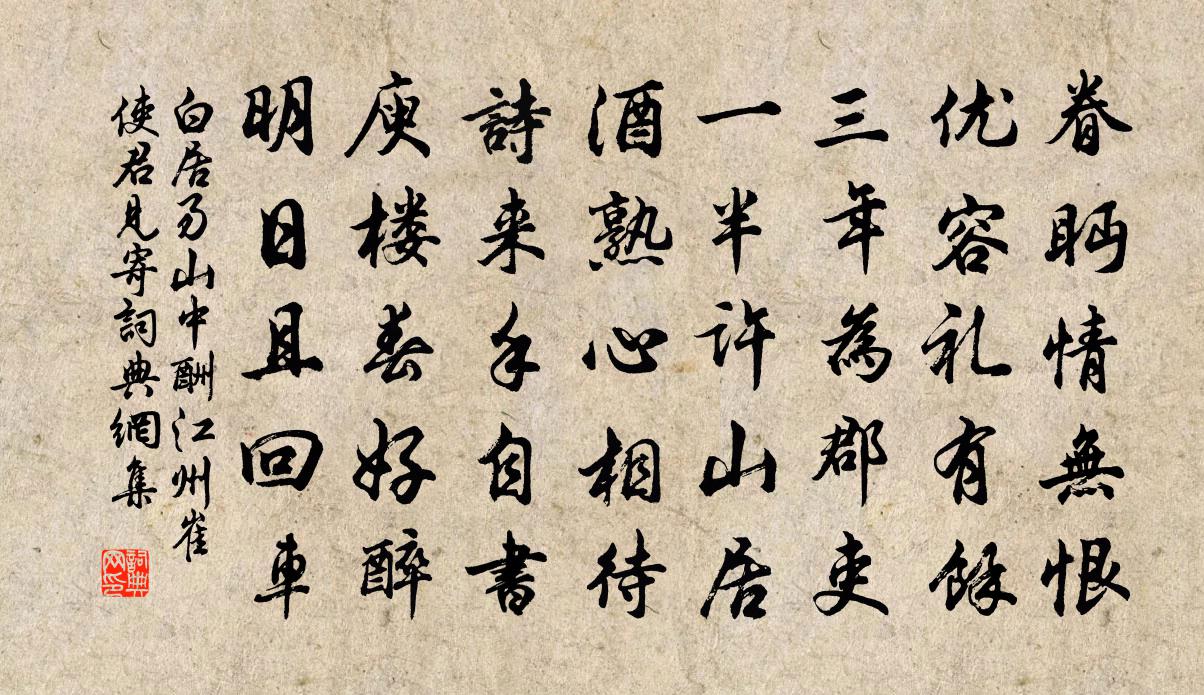 眷眄情無恨
优容礼有餘
三年為郡吏
一半許山居
酒熟心相待
詩来手自書
庾楼春好醉
明日且回車
白居易山中酬江州崔
使君見寄詞典網集
詞典
网印